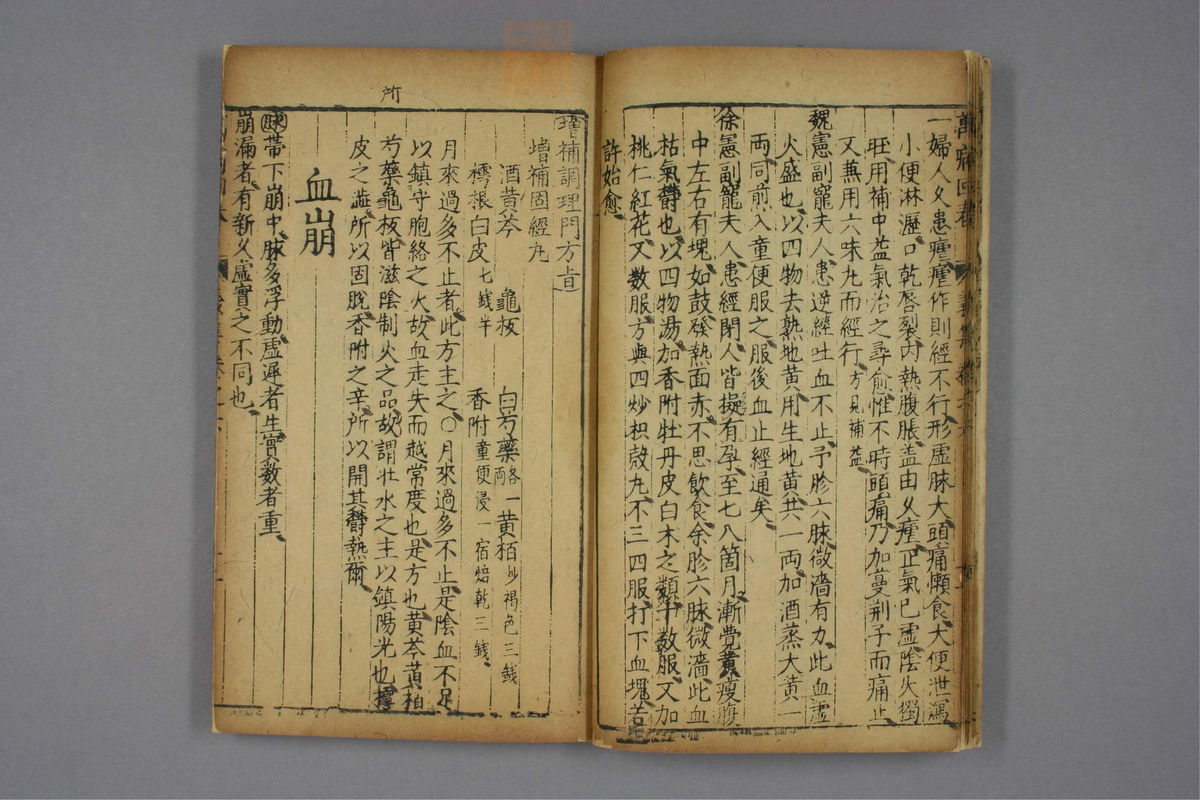 萬病回春
一婦人久患瘧瘧作則經不行形虛脉大頭痛懶食大便泄瀉
小便淋瀝口乾唇裂內熱腹脹盖由久瘧正氣已虛陰火獨
旺用補中益氣治之尋愈惟不時頭痛乃加蔓荆子而痛止
又兼用六味丸而經行方見補益
魏憲副寵夫人患逆經吐血不止予胗六脉微濇有力此血虛
火盛也以四物去熟地黄用生地黄共一両加酒蒸大黄一
両同煎入童便服之服後血止經通矣
徐憲副寵夫人患經閉人皆擬有孕至七八箇月漸覺黄瘦腹
中左右有塊如鼓發熱面赤不思飲食余胗六脉微濇此血
枯氣欝也以四物湯加香附牡丹皮白木之類十数服又加
桃仁紅花又数服方與四炒枳殻丸不三四服打下血塊若
許始愈
增補調理門方旨
增補固經丸
酒黄芩 龜板 白芍藥各一両 黄栢炒褐色三錢
樗根白皮七錢半 香附童便浸一宿焙乾三錢
月來過多不止者此方主之○月來過多不止是陰血不足
以鎮守胞絡之火故血走失而越常度也是方也黄芩黄栢
芍藥龜板皆滋陰制火之品故謂壮水之主以鎮陽光也樗
皮之澁所以固脫香附之辛所以開其欝熱爾
所
血崩
脉帯下崩中脉多浮動虛遲者生實数者重
崩漏者有新久虛實之不同也